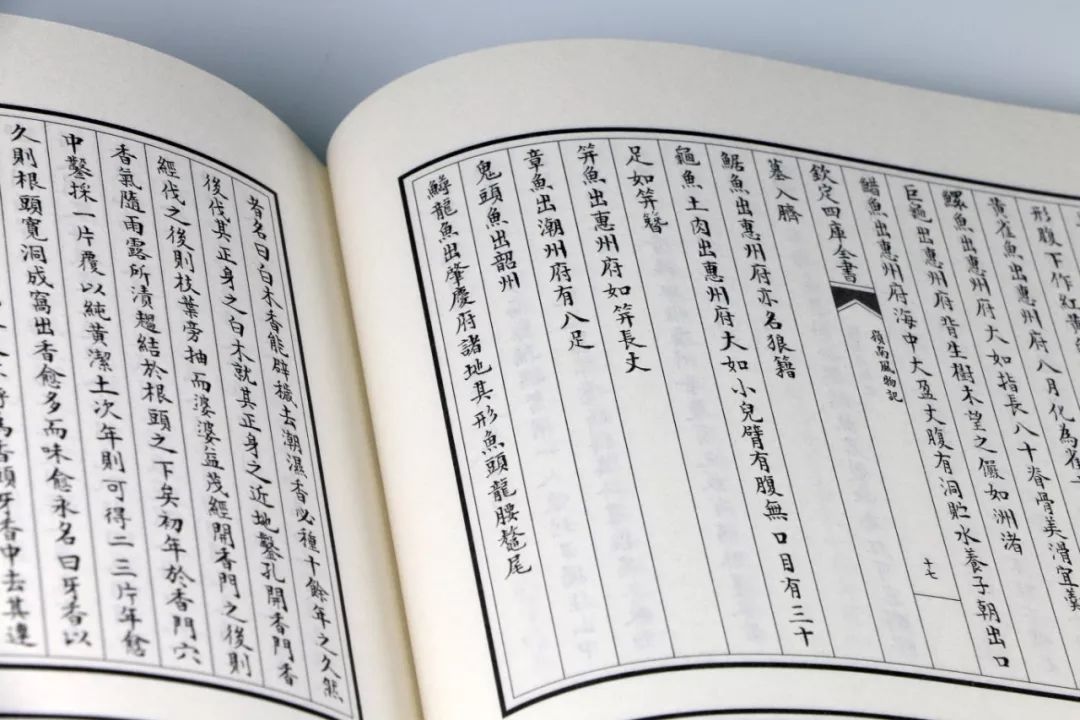 形腹下作紅黃
黃雀魚出惠州府八月化為雀
螺魚出惠州府大如指長八十脊骨美滑宜羹
巨龜出惠州府背生樹木望之儼如洲渚
魚出惠州府海中大盈丈腹有洞貯水養子朝出口
欽定四庫全書
嶺南風物記
十七
暮入臍
魚出惠州府亦名狼籍
龜魚土肉出惠州府大如小兒臂有腹無口目有三十
足如笄簪
笄魚出惠州府如笄長丈
章魚出潮州府有八足
鬼頭魚出韶州
鱘龍魚出肇慶府諸地其形魚頭龍腰鼇尾
者名曰白木香能辟穢去潮濕香必種十餘年之久然
後伐其正身之白木就其正身之近地鑿孔開香門香
經伐之後則枝葉旁抽而婆婆益茂經開香門之後則
香氣隨雨露所漬趨結於根頭之下矣初年於香門穴
中鑿採一片覆以純黃潔土次年則可得二三片年愈
久則根頭寬洞成窩出香愈多而味愈永名曰牙香以
為香頭牙香中去其連